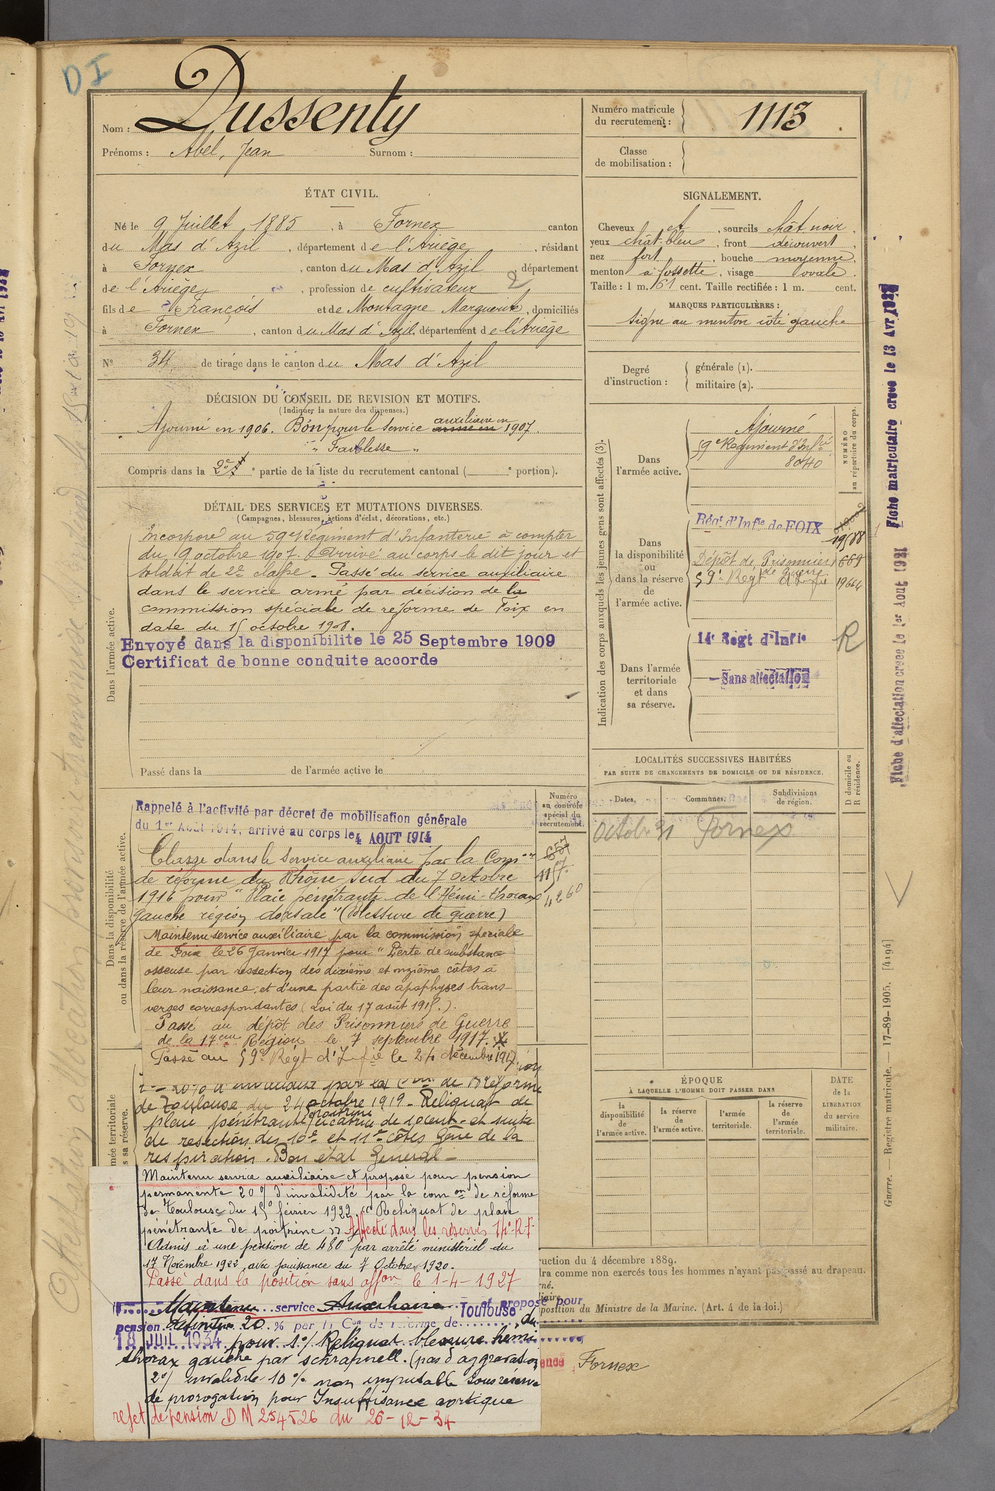 DI
Nom : Dussenty
Prénoms : Abel, Jean Surnom :
Numéro matricule du recrutement : 1113
Classe de mobilisation :
ÉTAT CIVIL.
Né le 9 Juillet 1885, à Fornex canton
du Mas d'Azil, département de l'Ariège, résidant
à Fornex, canton du Mas d'Azil département
de l'Ariège, profession de cultivateur
fils de François et de Montagne Marguerite, domiciliés
à Fornex, canton du Mas d'Azil département de l'Ariège
N° 34 de tirage dans le canton du Mas d'Azil
SIGNALEMENT.
Cheveux et, sourcils chât noir,
yeux chât-bleu, front découvert,
nez fort, bouche moyenne,
menton à fossette, visage ovale.
Taille : 1 m. 61 cent. Taille rectifiée : 1 m. cent.
MARQUES PARTICULIÈRES :
signe au menton côté gauche
Degré d'instruction : générale (1).
militaire (2).
DÉCISION DU CONSEIL DE REVISION ET MOTIFS.
(Indiquer la nature des dispenses.)
Ajourné en 1906. Bon pour le service auxiliaire en 1907.
" Faiblesse "
Compris dans la 2e partie de la liste du recrutement cantonal ( portion).
DÉTAIL DES SERVICES ET MUTATIONS DIVERSES.
(Campagnes, blessures, actions d'éclat, décorations, etc.)
Dans l'armée active.
Incorporé au 59e Régiment d'Infanterie à compter
du 9 octobre 1907. Arrivé au corps le dit jour et
soldat de 2e classe. Passé du service auxiliaire
dans le service armé par décision de la
commission spéciale de réforme de Foix en
date du 15 octobre 1908.
Envoyé dans la disponibilite le 25 Septembre 1909
Certificat de bonne conduite accorde
Passé dans la de l'armée active le
Indication des corps auxquels les jeunes gens sont affectés (3).
NUMÉRO au répertoire du corps.
Dans l'armée active.
Ajourné
59e Régiment d'Infie
8040
Dans la disponibilité ou dans la réserve de l'armée active.
Régt d'Infie de FOIX
Dépôt de Prisonniers de Guerre
59e Régt d'Infie
Dans l'armée territoriale et dans sa réserve.
14e Regt d'Infie
R
Sans affectation
LOCALITÉS SUCCESSIVES HABITÉES
PAR SUITE DE CHANGEMENTS DE DOMICILE OU DE RÉSIDENCE.
Dates. Communes. Subdivisions de région. D domicile ou R résidence.
Octob 31 Fornex
Dans la disponibilité ou dans la réserve de l'armée active.
Numéro au contrôle spécial du recrutement.
Rappelé à l'activité par décret de mobilisation générale
du 1er Août 1914, arrivé au corps le 4 AOUT 1914
Classé dans le service auxiliaire par la Comon
de réforme du Rhône sud du 7 octobre
1916 pour "Plaie pénétrante de l'Hémi-thorax
gauche région dorsale" (Blessure de guerre)
Maintenu service auxiliaire par la commission spéciale
de Foix le 26 Janvier 1917 pour "Perte de substance
osseuse par resection des dixième et onzième côtes à
leur naissance, et d'une partie des apophyses trans-
verses correspondantes (Loi du 17 août 1915.)
Passé au dépôt des Prisonniers de Guerre
de la 17eme Région le 7 septembre 1917.
Passé au 59e Régt d'Infie le 24 décembre 1917
20% d'invalidité par la Con de Réforme
de Toulouse du 24 octobre 1919 - Reliquat de
plaie pénétrante poitrine
de resection des 10e et 11e côtes Gêne de la
respiration. Bon état Général -
Maintenu service auxiliaire et proposé pour pension
permanente 20% d'invalidité par la com on de réforme
de Toulouse du 15 février 1922 "Reliquat de plaie
pénétrante de poitrine" Affecté dans les réserves 14e R.I.
Admis à une pension de 480 par arrêté ministériel du
17 Novembre 1922, avec jouissance du 7 Octobre 1920.
Passé dans la position sans affon le 1-4-1927
Maintenu service Auxiliaire et proposé pour
pension définitive 20 % par la Con de réforme de Toulouse, du
18 JUIL 1934 pour 1°/ Reliquat blessure hémi
thorax gauche par schrapnell. (pas d'aggravation
2°/ invalidité 10% non imputable sous réserve
de prorogation pour Insuffisance aortique
rejet de pension DM 254526 du 26-12-34
ÉPOQUE
À LAQUELLE L'HOMME DOIT PASSER DANS
la disponibilité de l'armée active. la réserve de l'armée active. l'armée territoriale. la réserve de l'armée territoriale.
DATE de la LIBÉRATION du service militaire.
ruction du 4 décembre 1889.
dra comme non exercés tous les hommes n'ayant pas passé au drapeau.
position du Ministre de la Marine. (Art. 4 de la loi.)
Fornex
Fiche matriculaire créée le 13 Avr 1921
Fiche d'affectation creee le 1er Aout 1921
Guerre. — Registre matricule. — 17-89-1905. [4194]